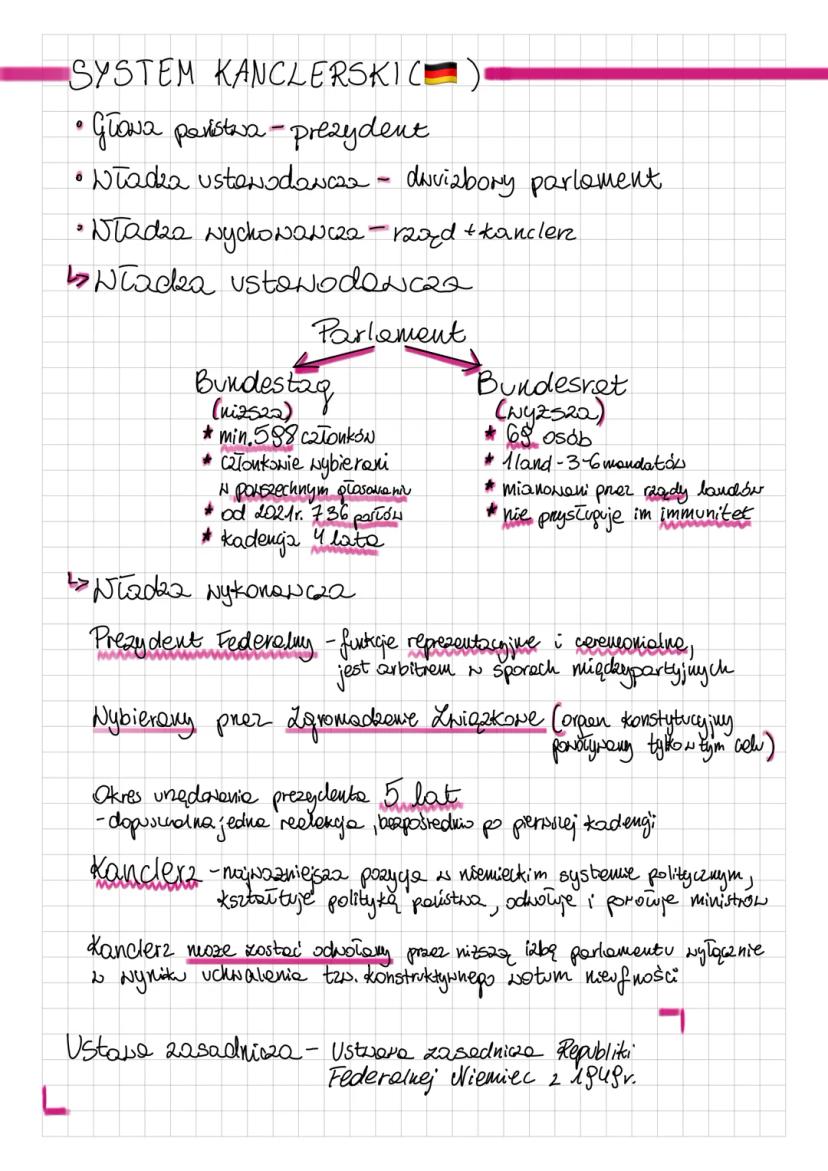 SYSTEM KANCLERSKI (🇩🇪)
• Głowa państwa - prezydent
• Władza ustawodawcza - dwuizbowy parlament
• Władza wychowawcza - rząd + kanclerz
↳ Władza ustawodawcza
Parlament
Bundestag
(niższa)
* min. 598 członków
* członkowie wybierani
w powszechnym głosowaniu
* od 2021r. 736 posłów
* kadencja 4 lata
Bundesrat
(wyższa)
* 69 osób
* 1 land - 3-6 mandatów
* mianowani przez rządy landów
* nie przysługuje im immunitet
↳ Władza wykonawcza
Prezydent Federalny - funkcje reprezentacyjne i ceremonialne,
jest arbitrem w sporach międzypartyjnych
Wybierany przez Zgromadzenie Związkowe (organ konstytucyjny
powoływany tylko w tym celu)
Okres urzędowania prezydenta 5 lat
- dopuszczalna jedna reelekcja, bezpośrednio po pierwszej kadencji
Kanclerz - najważniejsza pozycja w niemieckim systemie politycznym,
kształtuje politykę państwa, odwołuje i powołuje ministrów
Kanclerz może zostać odwołany przez niższą izbę parlamentu wyłącznie
w wyniku uchwalenia tzw. konstruktywnego wotum nieufności
Ustawa zasadnicza - Ustawa zasadnicza Republiki
Federalnej Niemiec z 1949r.